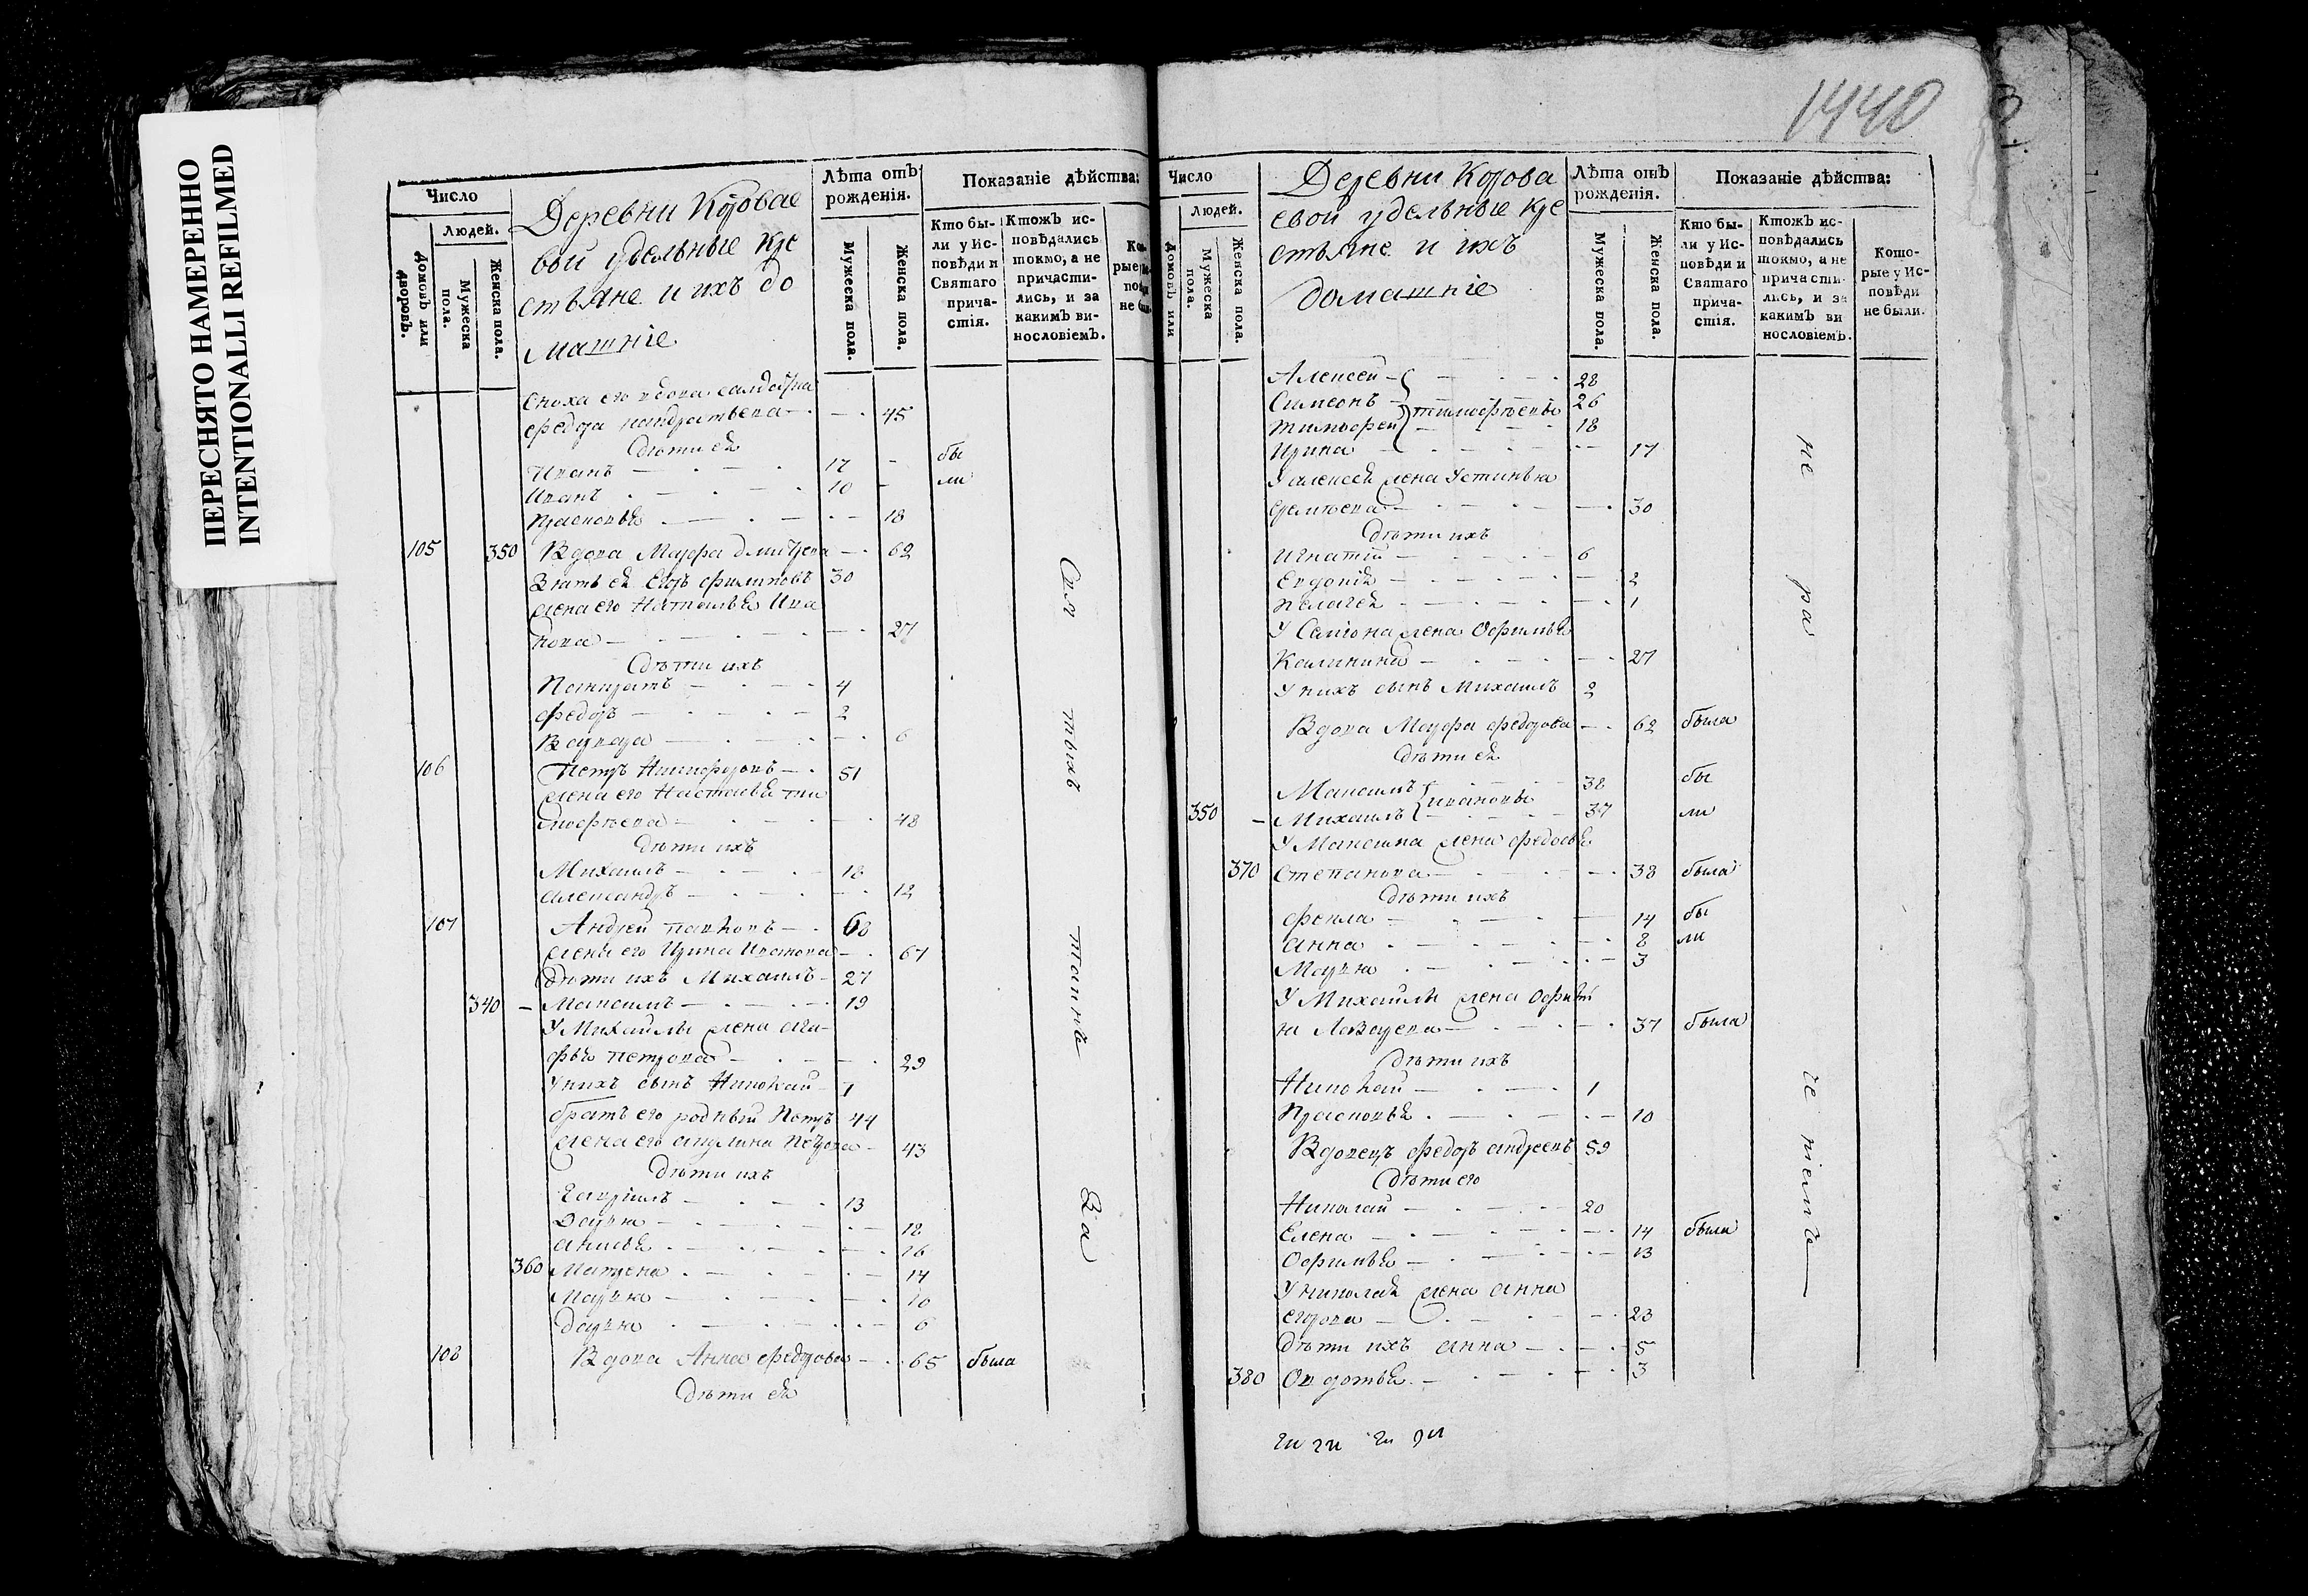 ПЕРЕСНЯТО НАМЕРЕННО
INTENTIONALLI REFILMED
1440
Число
Людей.
Домовъ или дворовъ.
Мужеска пола.
Женска пола.
Деревни Коровае
вой удельные кре
стьяне и ихъ до
машніе
Лѣта отъ рожденія.
Мужеска пола.
Женска пола.
Показаніе дѣйства:
Кто бы-
ли у Ис-
повѣди и
Святаго
прича-
стія.
Ктожъ ис-
повѣдались
токмо, а не
причасти-
лись, и за
какимъ ви-
нословіемъ.
Сноха его вдова салдатка
федора кондратьева 45
дѣти ея
Иванъ 17 бы
Иванъ 10 ли
Прасковья 18
105 350 Вдова Марфа дмитрева 62
Зять ея Егоръ филиповъ 30
жена его Наталья Ива
нова 27
дѣти ихъ
Панкратъ 4
федоръ 2
Варвара 6
106 Петръ Никифоровъ 51
жена его Настасья ти
мофѣева 48
дѣти ихъ
Михаилъ 18
александръ 12
107 Андрей павловъ 68
жена его Ирина Иванова 67
дѣти ихъ Михаилъ 27
340 Максимъ 19
У Михаилы жена ага
фья петрова 29
У нихъ сынъ Николай 1
братъ его родный Петръ 44
жена его акулина петрова 43
дѣти ихъ
Гавріилъ 13
дарья 18
анисья 16
360 Матрена 14
Марья 10
дарья 6
108 Вдова Анна федорова 65 была
дѣти ея
Число
Людей.
Домовъ или
Мужеска пола.
Женска пола.
Деревни Корова
евой удельные кре
стьяне и ихъ
домашніе
Лѣта отъ рожденія.
Мужеска пола.
Женска пола.
Показаніе дѣйства:
Кто бы-
ли у Ис-
повѣди и
Святаго
прича-
стія.
Ктожъ ис-
повѣдались
токмо, а не
причасти-
лись, и за
какимъ ви
нословіемъ.
Кото-
рые у Ис-
повѣди
не были.
Алексей 28
Симеонъ тимофѣевы 26
тимофей 18
Ирина 17
У алексея жена Устинья
30
дѣти ихъ
игнатій 6
Евдокія 2
пелагея 1
У Семіона жена Офимья
Калинина 27
У нихъ сынъ Михаилъ 2
Вдова Марфа федорова 62 была
дѣти ея
Максимъ ивановы 38 бы
350 Михаилъ 37 ли
У Максима жена федосья
370 степанова 38 была
дѣти ихъ
фекла 14 бы
анна 8 ли
Марья 3
У Михайлы жена
на Лазарева 37 была
дѣти ихъ
Николай 1
Прасковья 10
Вдовецъ федоръ андреевъ 59
дѣти его
Николай 20
Елена 14 была
Офимья 13
У николая жена анна
егорова 23
дѣти ихъ анна 5
380 Овдотья 3
За
не
ра